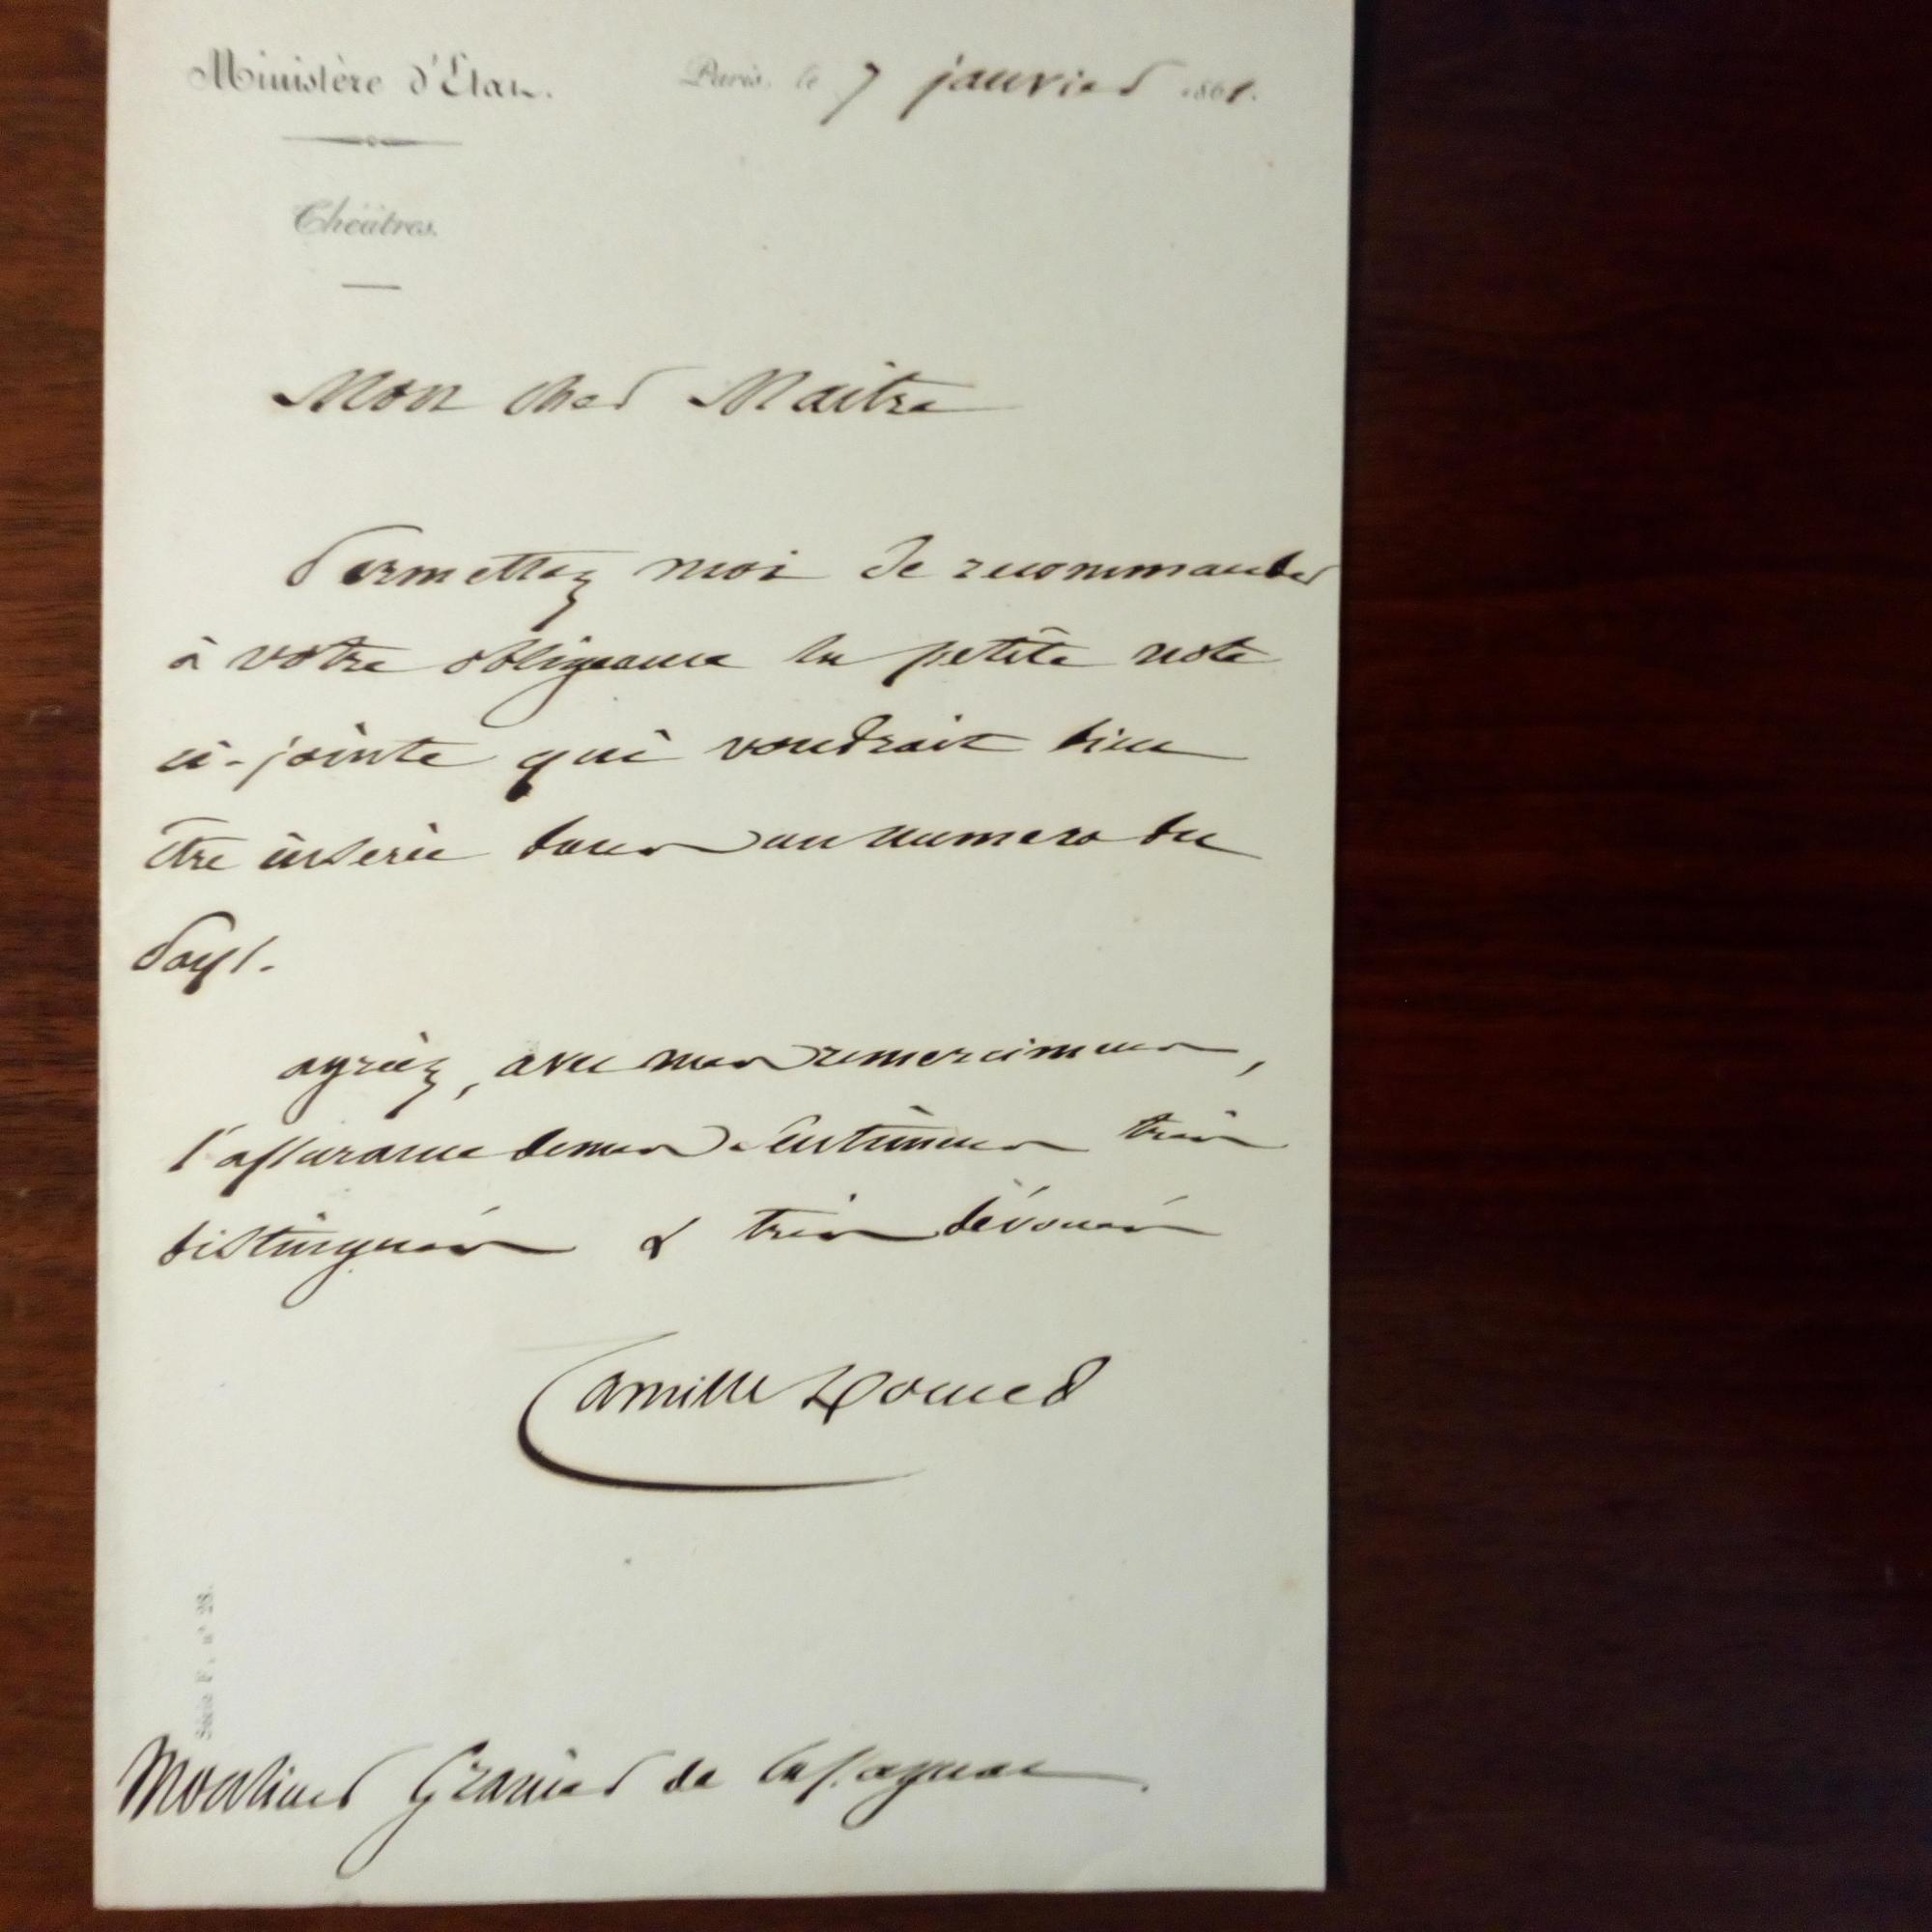 Ministère d'Etat.
Paris, le 7 janvier 1861.
Théâtres.
Mon cher Maitre
Permettez moi de recommander
à votre obligeance la petite note
ci-jointe qui voudrait bien
être inserée dans un numero du
Pays.
agréez, avec mes remerciemens,
l'assurance de mes sentimens très
distingués & très dévoués
Camille Doucet
Série F. n° 28.
Monsieur Granier de Cassagnac.